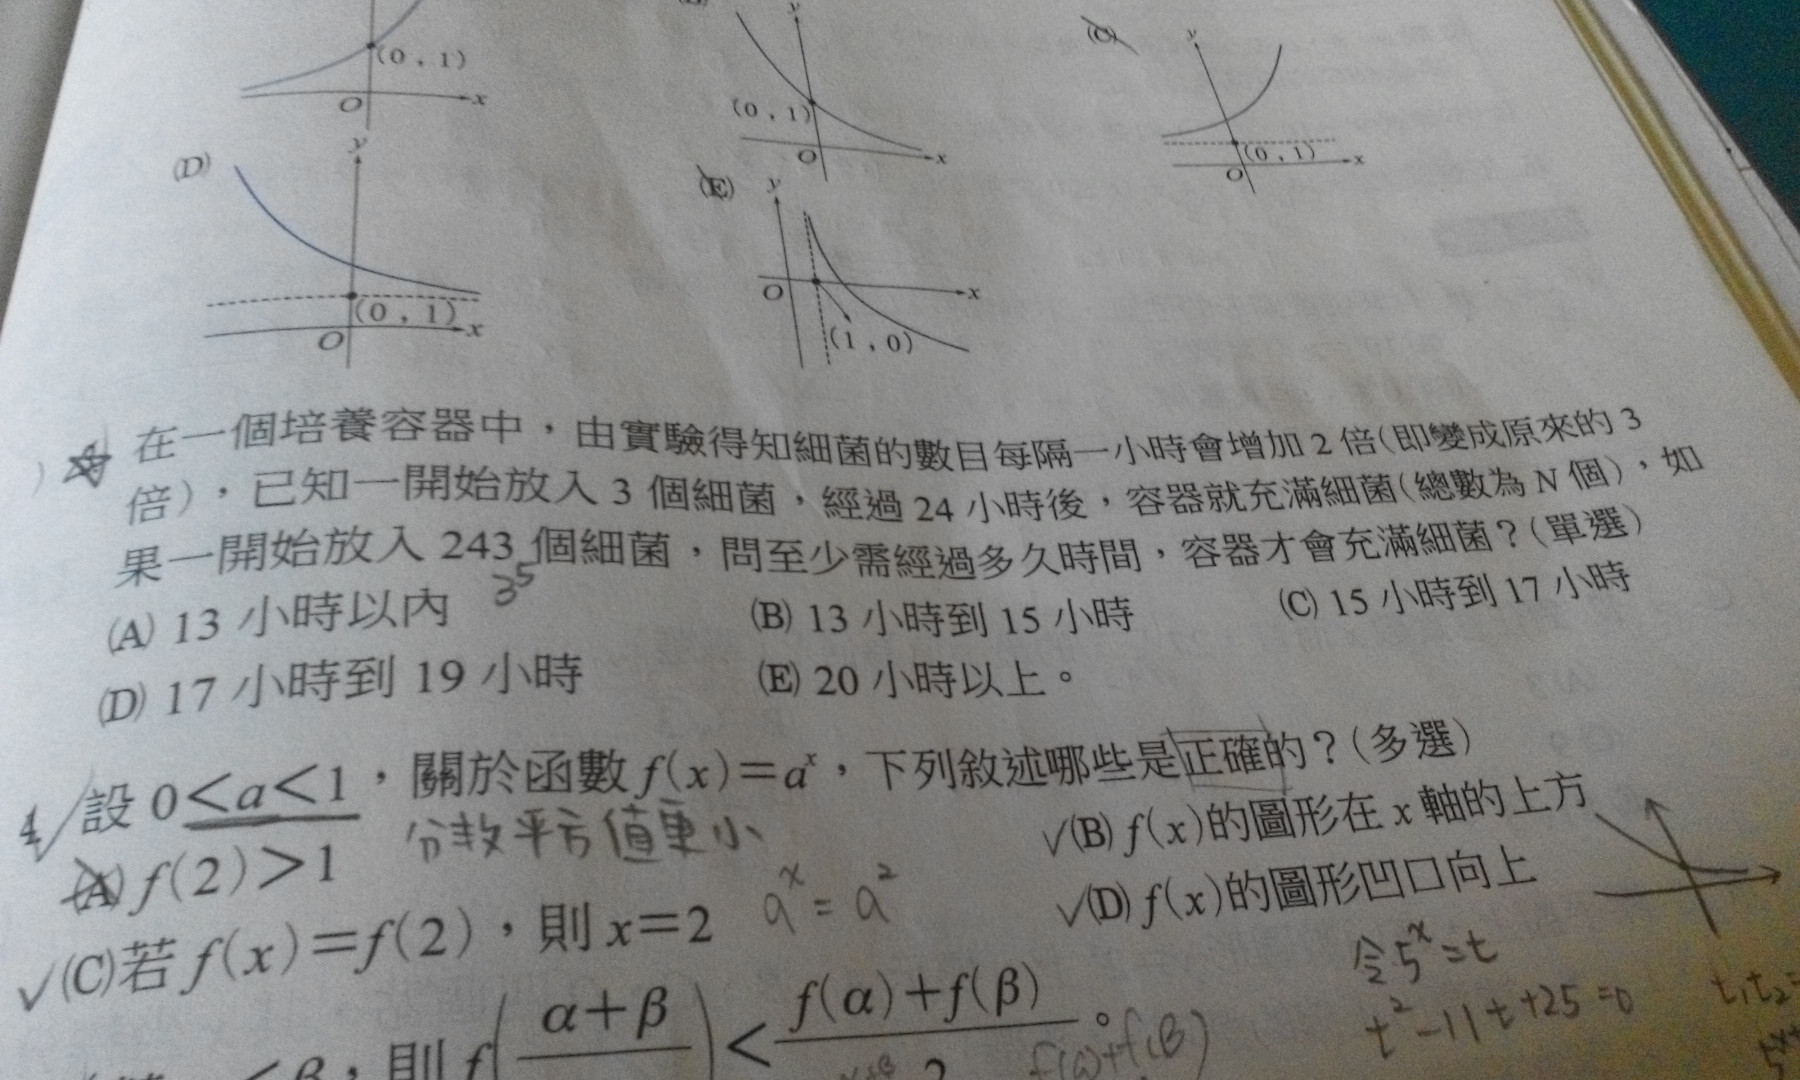 (0，1)
O x
y
(0，1)
O x
(C)
y
(0，1)
O x
(D)
y
(0，1)
O x
(E)
y
O x
(1，0)
在一個培養容器中，由實驗得知細菌的數目每隔一小時會增加 2 倍(即變成原來的 3
倍)，已知一開始放入 3 個細菌，經過 24 小時後，容器就充滿細菌(總數為 N 個)，如
果一開始放入 243 個細菌，問至少需經過多久時間，容器才會充滿細菌？(單選)
3⁵
(A) 13 小時以內 (B) 13 小時到 15 小時 (C) 15 小時到 17 小時
(D) 17 小時到 19 小時 (E) 20 小時以上。
4 設 0<a<1，關於函數 f(x)=aˣ，下列敘述哪些是正確的？(多選)
分數平方值更小
(A) f(2)>1 ✓(B) f(x)的圖形在 x 軸的上方
✓(C)若 f(x)=f(2)，則 x=2 aˣ = a² ✓(D) f(x)的圖形凹口向上
令5ˣ=t
t²-11t+25=0 t₁t₂=
<β，則 f(α+β)<f(α)+f(β)/2。
f(α)+f(β)